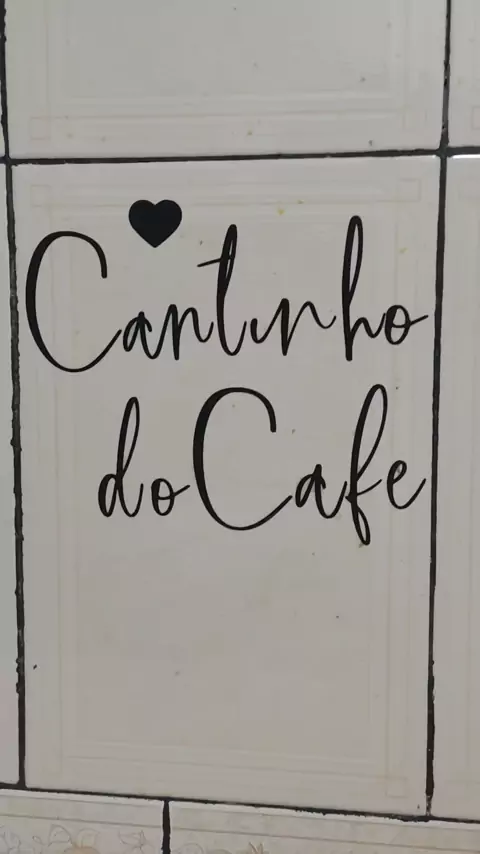 Cantinho
do Cafe